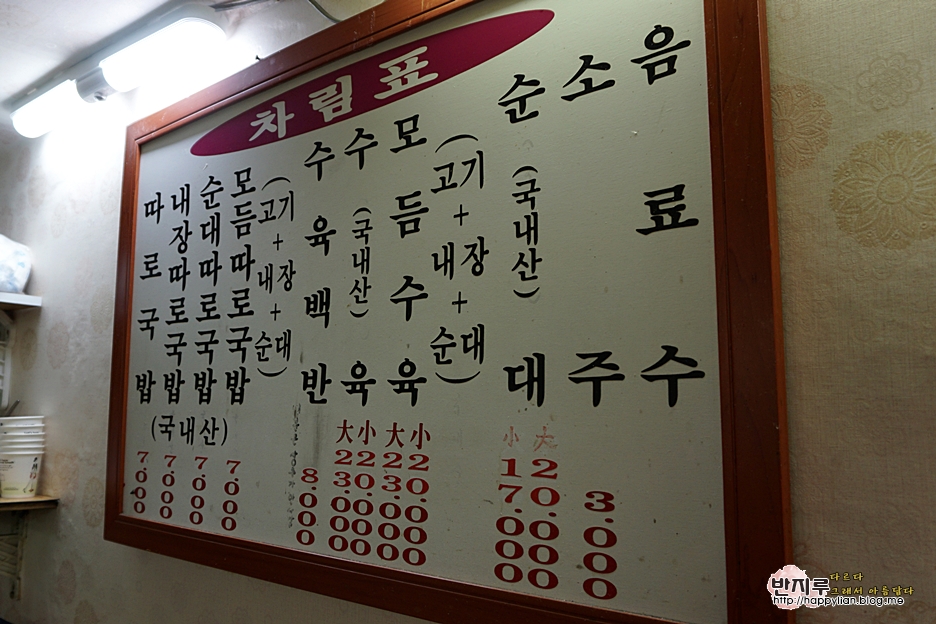 차림표
따로국밥
내장따로국밥
순대따로국밥
모듬따로국밥
(고기+내장+순대)
(국내산)
7.000
7.000
7.000
7.000
수육백반
8.000
수육
(국내산)
大 23.000
小 20.000
모듬수육
(고기+내장+순대)
大 23.000
小 20.000
순대
(국내산)
小 17.000
大 20.000
소주
3.000
음료수
반지루
다르다
그래서 아름답다
http://happylian.blog.me